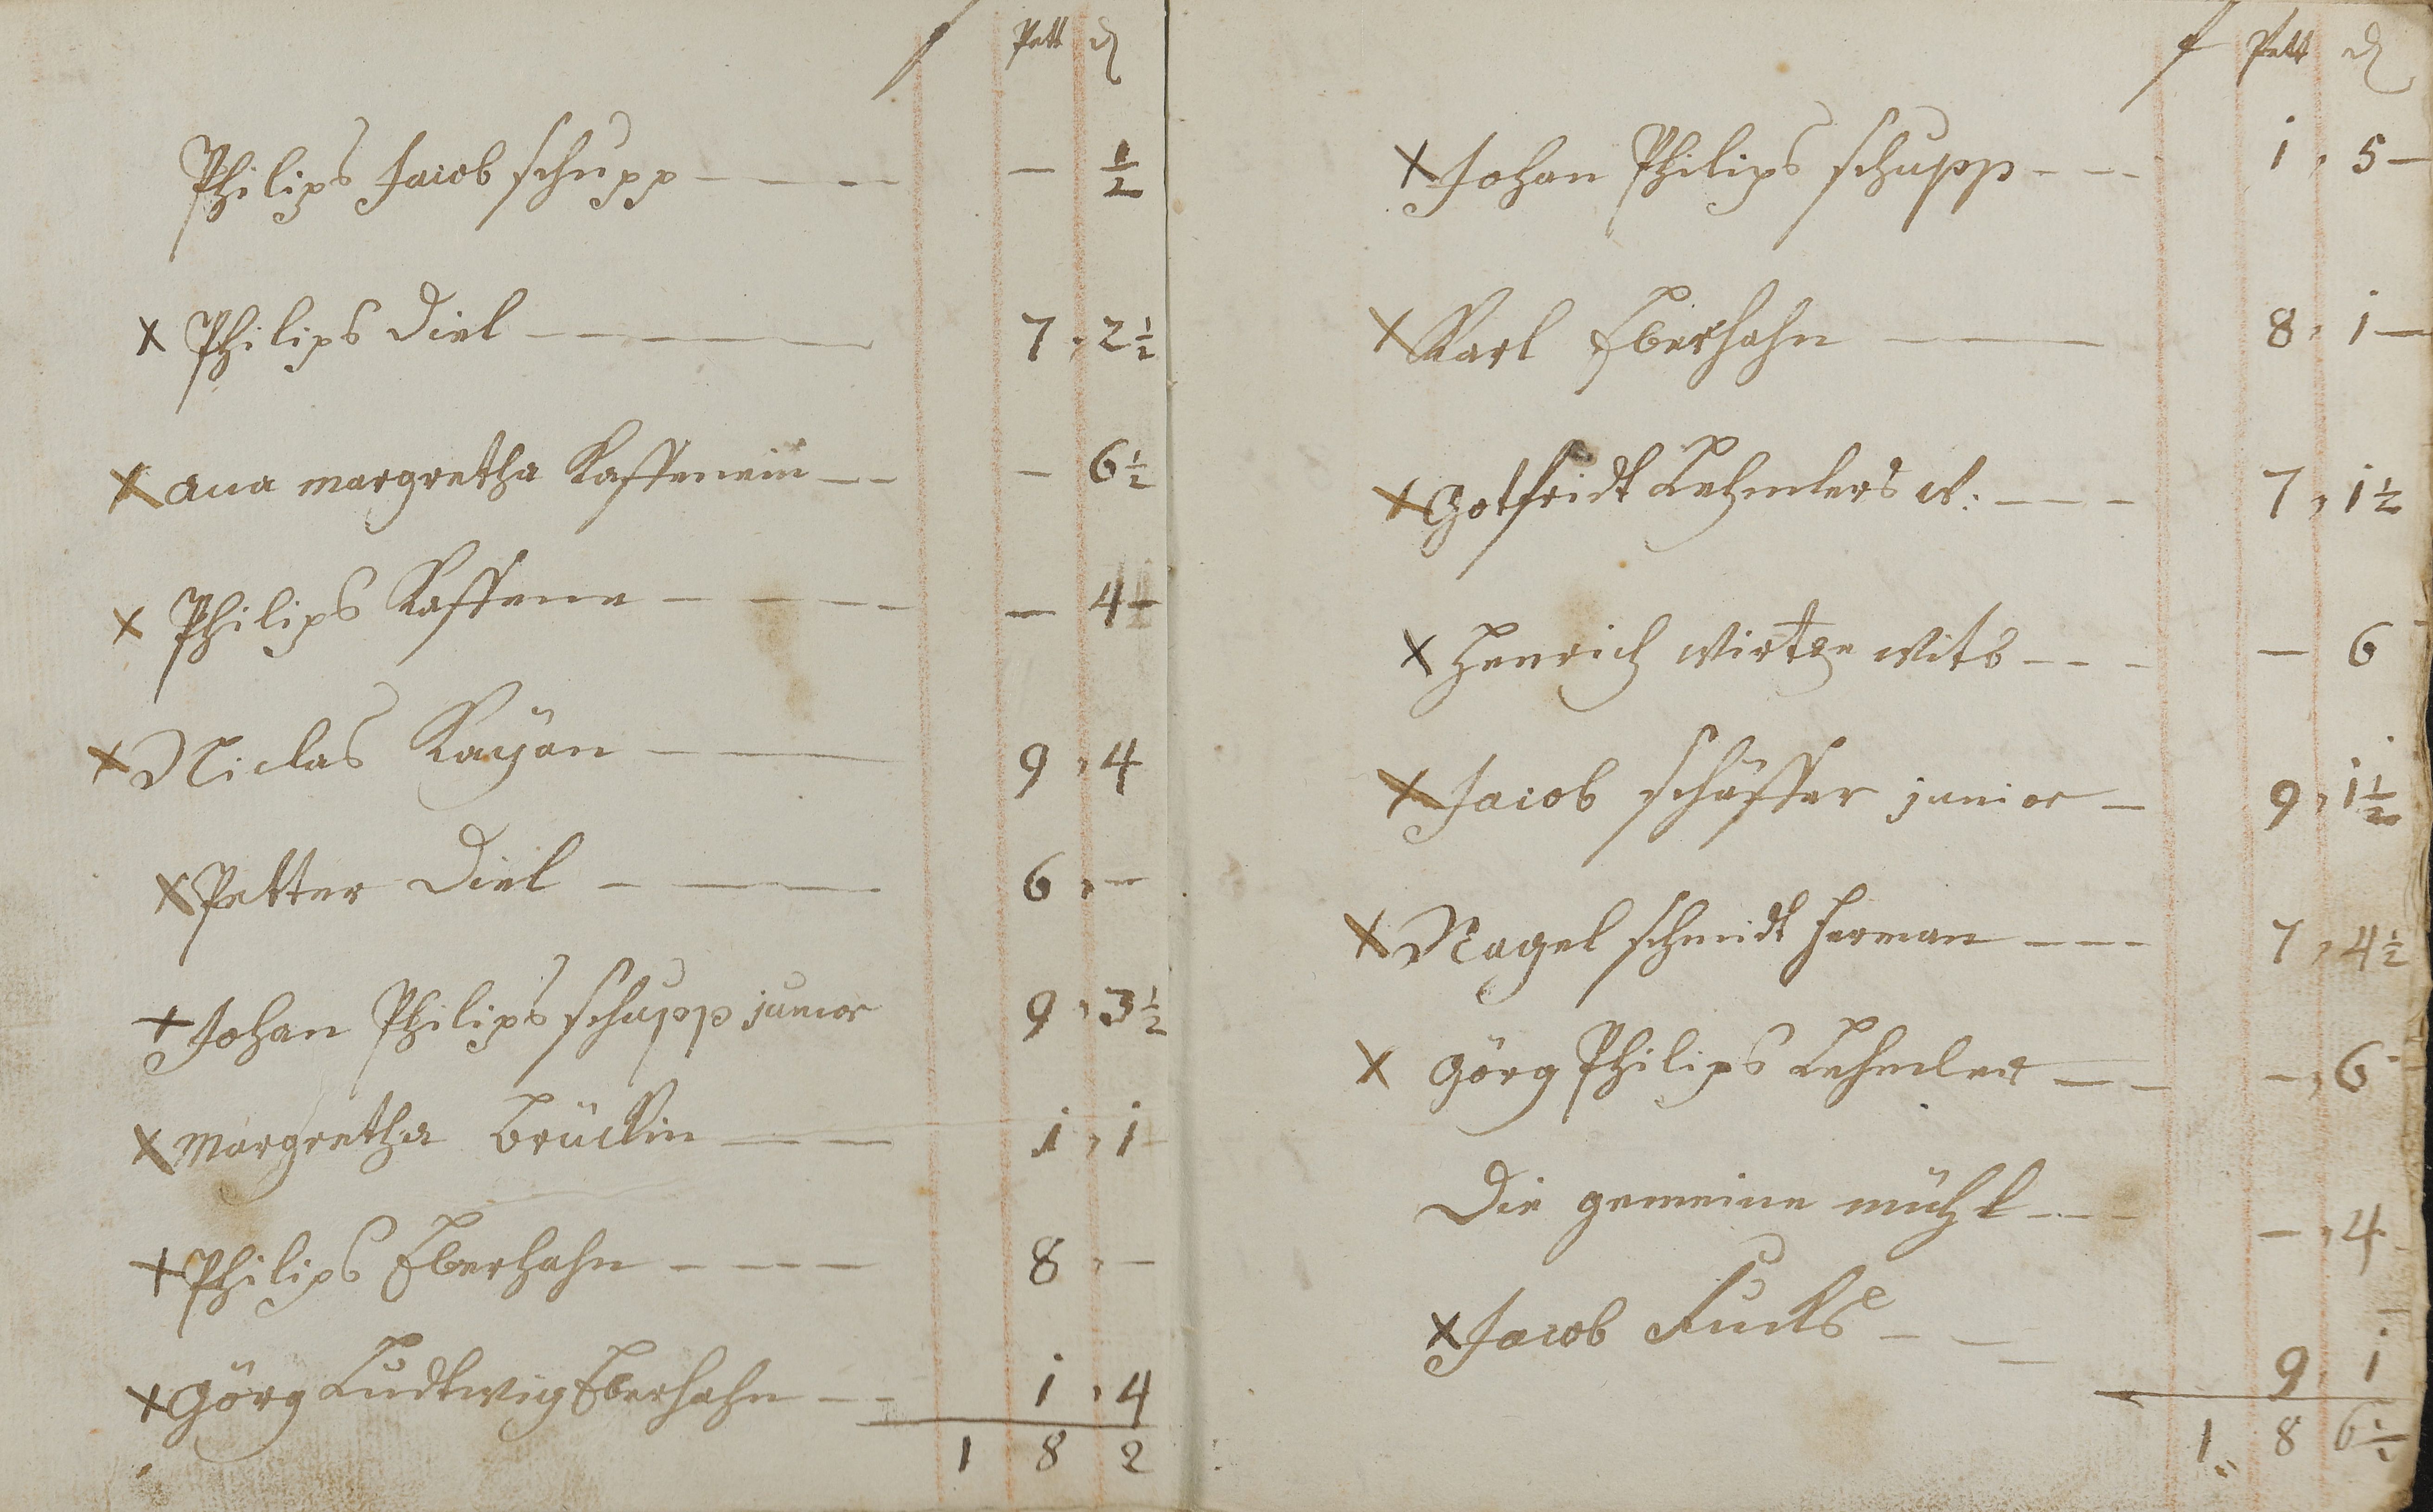 f Pett ₰
Philips Jacob schupp - - - - — ½
x Philips Diel - - - - 7, 2½
x ana margretha Kaffenein - - — 6½
x Philips Kaffene - - - - — 4 –
x Niclas Rayön - - 9, 4
x Petter Diel - - - 6, –
x Johan Philips schupp junior 9, 3½
x margretha brückin - - 1, 1
x Philips Eberhahn - - - - 8, –
x görg Ludtwig Eberhahn - - 1, 4
1 8 2
f Pett ₰
x Johan Philips schupp - - - 1, 5 –
x Karl Eberhahn - - 8, 1 –
x gotfridt Lehmlers w: - - - 7, 1½
x Henrich wirtze witb - - - — 6
x Jacob schäffer junior - 9, 1½
x Nagel schmidt Herman - - - 7, 4½
x görg Philips Lehmler - - –, 6
Die gemeine mühl - - - –, 4
x Jacob Fucks - - - 9, 1
1,, 8 6½